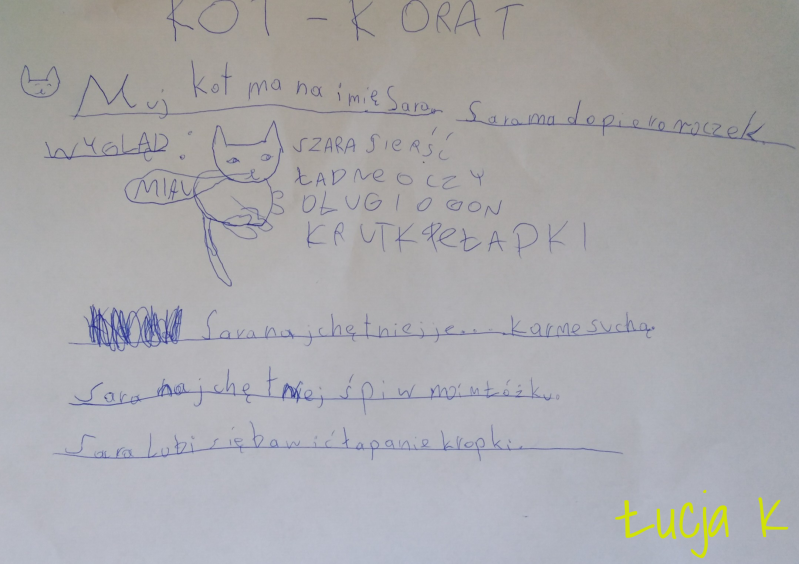 KOT - KORAT
Muj kot ma na imię Sara. Sara ma dopiero roczek.
WYGLĄD:
SZARA SIERŚĆ
MIAU
ŁADNE OCZY
DŁUGI OGON
KRUTKIE ŁAPKI
Sara najchętniej je.... karme suchą.
Sara najchętniej śpi w moim łóżku.
Sara lubi się bawić łapanie kropki.
Łucja K